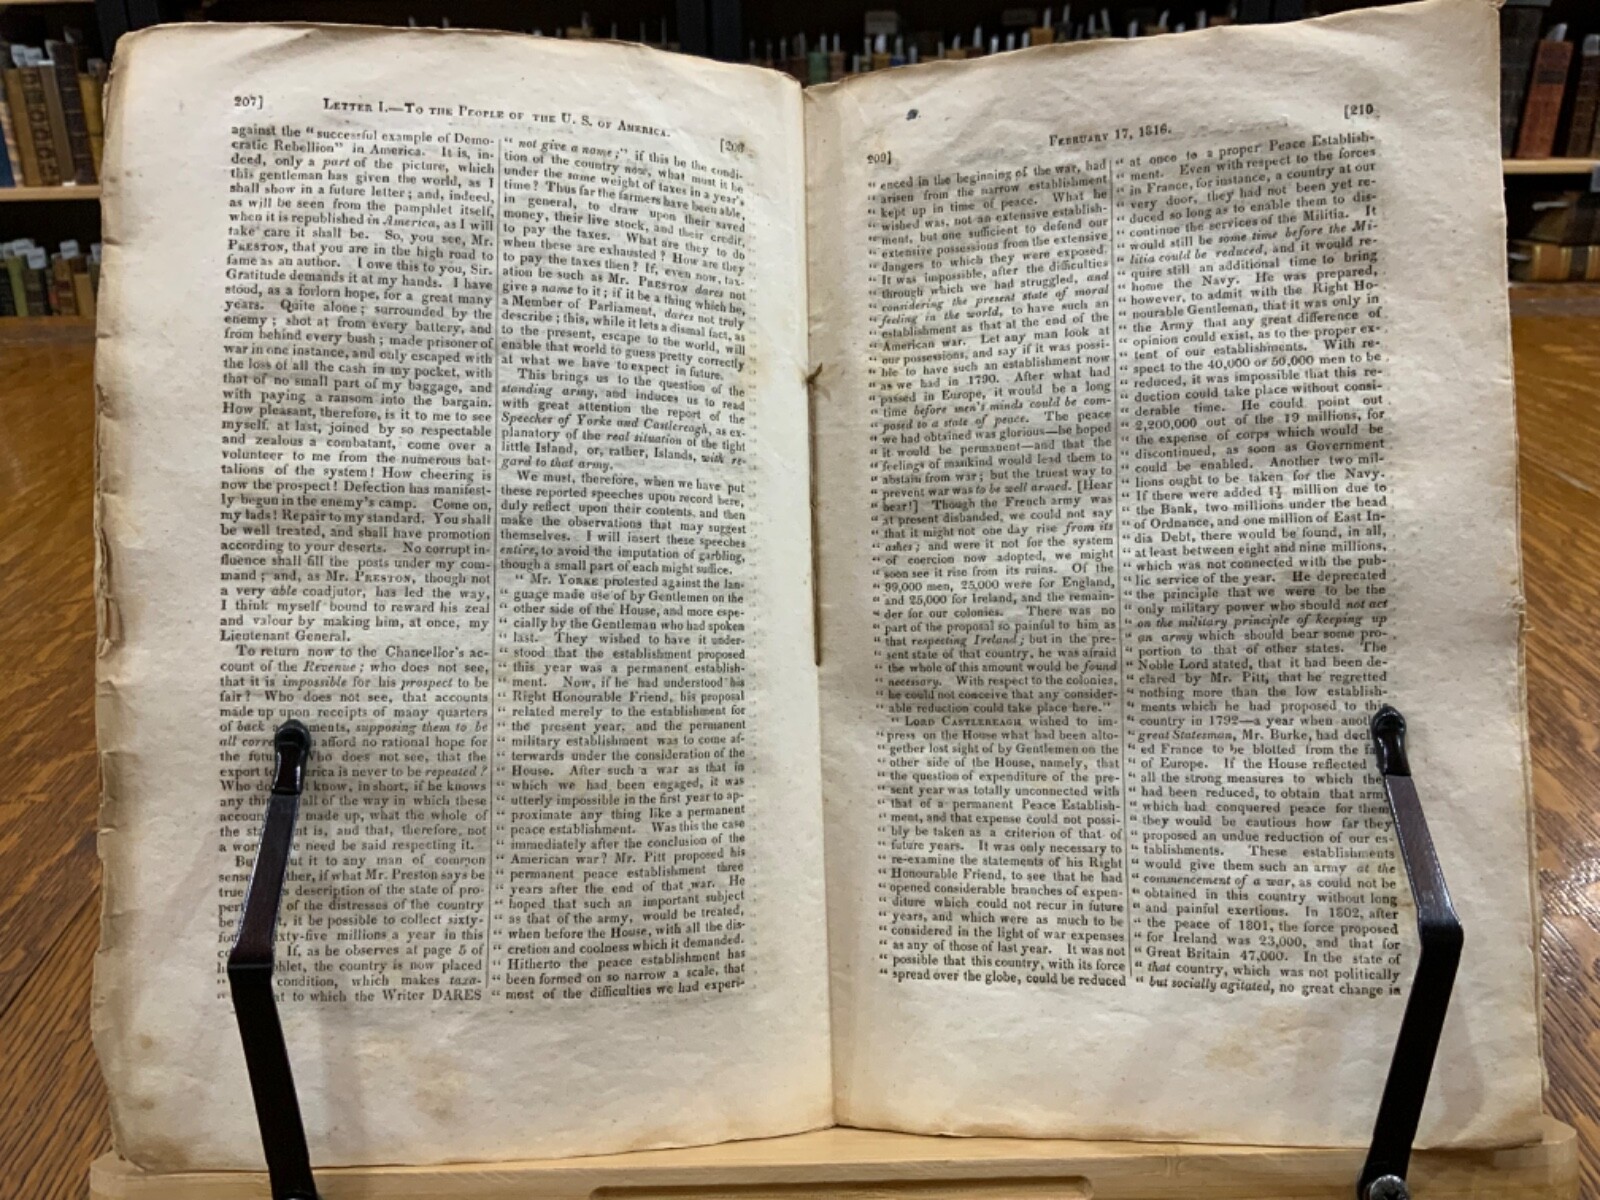 207]
LETTER I.—TO THE PEOPLE OF THE U. S. OF AMERICA.
against the "successful example of Demo-
cratic Rebellion" in America. It is, in-
deed, only a part of the picture, which
this gentleman has given the world, as I
shall show in a future letter; and, indeed,
as will be seen from the pamphlet itself,
when it is republished in America, as I will
take care it shall be. So, you see, Mr.
PRESTON, that you are in the high road to
fame as an author. I owe this to you, Sir.
Gratitude demands it at my hands. I have
stood, as a forlorn hope, for a great many
years. Quite alone; surrounded by the
enemy; shot at from every battery, and
from behind every bush; made prisoner of
war in one instance, and only escaped with
the loss of all the cash in my pocket, with
that of no small part of my baggage, and
with paying a ransom into the bargain.
How pleasant, therefore, is it to me to see
myself, at last, joined by so respectable
and zealous a combatant, come over a
volunteer to me from the numerous bat-
talions of the system! How cheering is
now the prospect! Defection has manifest-
ly begun in the enemy's camp. Come on,
my lads! Repair to my standard. You shall
be well treated, and shall have promotion
according to your deserts. No corrupt in-
fluence shall fill the posts under my com-
mand; and, as Mr. PRESTON, though not
a very able coadjutor, has led the way,
I think myself bound to reward his zeal
and valour by making him, at once, my
Lieutenant General.
To return now to the Chancellor's ac-
count of the Revenue; who does not see,
that it is impossible for his prospect to be
fair? Who does not see, that accounts
made up upon receipts of many quarters
of back ments, supposing them to be
all afford no rational hope for
the Who does not see, that the
export to is never to be repeated?
Who know, in short, if he knows
any all of the way in which these
made up, what the whole of
the is, and that, therefore, not
a need be said respecting it.
it to any man of common
if what Mr. Preston says be
true description of the state of pro-
of the distresses of the country
be it be possible to collect sixty-
millions a year in this
If, as he observes at page 5 of
the country is now placed
condition, which makes taxa-
to which the Writer DARES
"not give a name;" if this be the condi-
tion of the country now, what must it be
under the same weight of taxes in a year's
time? Thus far the farmers have been able,
in general, to draw upon their saved
money, their live stock, and their credit,
to pay the taxes. What are they to do
when these are exhausted? How are they
to pay the taxes then? If, even now, tax-
ation be such as Mr. PRESTON dares not
give a name to it; if it be a thing which he,
a Member of Parliament, dares not truly
describe; this, while it lets a dismal fact, as
to the present, escape to the world, will
enable that world to guess pretty correctly
at what we have to expect in future.
This brings us to the question of the
standing army, and induces us to read
with great attention the report of the
Speeches of Yorke and Castlereagh, as ex-
planatory of the real situation of the tight
little Island, or, rather, Islands, with re-
gard to that army.
We must, therefore, when we have put
these reported speeches upon record here,
duly reflect upon their contents, and then
make the observations that may suggest
themselves. I will insert these speeches
entire, to avoid the imputation of garbling,
though a small part of each might suffice.
"Mr. YORKE protested against the lan-
" guage made use of by Gentlemen on the
" other side of the House, and more espe-
" cially by the Gentleman who had spoken
" last. They wished to have it under-
" stood that the establishment proposed
" this year was a permanent establish-
" ment. Now, if he had understood his
" Right Honourable Friend, his proposal
" related merely to the establishment for
" the present year, and the permanent
" military establishment was to come af-
" terwards under the consideration of the
" House. After such a war as that in
" which we had been engaged, it was
" utterly impossible in the first year to ap-
" proximate any thing like a permanent
" peace establishment. Was this the case
" immediately after the conclusion of the
" American war? Mr. Pitt proposed his
" permanent peace establishment three
" years after the end of that war. He
" hoped that such an important subject
" as that of the army, would be treated,
" when before the House, with all the dis-
" cretion and coolness which it demanded.
" Hitherto the peace establishment has
" been formed on so narrow a scale, that
" most of the difficulties we had experi-
209]
FEBRUARY 17, 1816.
[210
" enced in the beginning of the war, had
" arisen from the narrow establishment
" kept up in time of peace. What he
" wished was, not an extensive establish-
" ment, but one sufficient to defend our
" extensive possessions from the extensive
" dangers to which they were exposed.
" It was impossible, after the difficulties
" through which we had struggled, and
" considering the present state of moral
" feeling in the world, to have such an
" establishment as that at the end of the
" American war. Let any man look at
" our possessions, and say if it was possi-
" ble to have such an establishment now
" as we had in 1790. After what had
" passed in Europe, it would be a long
" time before men's minds could be com-
" posed to a state of peace. The peace
" we had obtained was glorious—he hoped
" it would be permanent—and that the
" feelings of mankind would lead them to
" abstain from war; but the truest way to
" prevent war was to be well armed. [Hear
" hear!] Though the French army was
" at present disbanded, we could not say
" that it might not one day rise from its
" ashes; and were it not for the system
" of coercion now adopted, we might
" soon see it rise from its ruins. Of the
" 99,000 men, 25,000 were for England,
" and 25,000 for Ireland, and the remain-
" der for our colonies. There was no
" part of the proposal so painful to him as
" that respecting Ireland; but in the pre-
" sent state of that country, he was afraid
" the whole of this amount would be found
" necessary. With respect to the colonies,
" he could not conceive that any consider-
" able reduction could take place here."
" LORD CASTLEREAGH wished to im-
" press on the House what had been alto-
" gether lost sight of by Gentlemen on the
" other side of the House, namely, that
" the question of expenditure of the pre-
" sent year was totally unconnected with
" that of a permanent Peace Establish-
" ment, and that expense could not possi-
" bly be taken as a criterion of that of
" future years. It was only necessary to
" re-examine the statements of his Right
" Honourable Friend, to see that he had
" opened considerable branches of expen-
" diture which could not recur in future
" years, and which were as much to be
" considered in the light of war expenses
" as any of those of last year. It was not
" possible that this country, with its force
" spread over the globe, could be reduced
" at once to a proper Peace Establish-
" ment. Even with respect to the forces
" in France, for instance, a country at our
" very door, they had not been yet re-
" duced so long as to enable them to dis-
" continue the services of the Militia. It
" would still be some time before the Mi-
" litia could be reduced, and it would re-
" quire still an additional time to bring
" home the Navy. He was prepared,
" however, to admit with the Right Ho-
" nourable Gentleman, that it was only in
" the Army that any great difference of
" opinion could exist, as to the proper ex-
" tent of our establishments. With re-
" spect to the 40,000 or 50,000 men to be
" reduced, it was impossible that this re-
" duction could take place without consi-
" derable time. He could point out
" 2,200,000 out of the 19 millions, for
" the expense of corps which would be
" discontinued, as soon as Government
" could be enabled. Another two mil-
" lions ought to be taken for the Navy.
" If there were added 1½ million due to
" the Bank, two millions under the head
" of Ordnance, and one million of East In-
" dia Debt, there would be found, in all,
" at least between eight and nine millions,
" which was not connected with the pub-
" lic service of the year. He deprecated
" the principle that we were to be the
" only military power who should not act
" on the military principle of keeping up
" an army which should bear some pro-
" portion to that of other states. The
" Noble Lord stated, that it had been de-
" clared by Mr. Pitt, that he regretted
" nothing more than the low establish-
" ments which he had proposed to this
" country in 1792—a year when
" great Statesman, Mr. Burke, had
" ed France to be blotted from the
" of Europe. If the House reflected
" all the strong measures to which they
" had been reduced, to obtain that army
" which had conquered peace for them
" they would be cautious how far they
" proposed an undue reduction of our es-
" tablishments. These establishments
" would give them such an army at the
" commencement of a war, as could not be
" obtained in this country without long
" and painful exertions. In 1802, after
" the peace of 1801, the force proposed
" for Ireland was 23,000, and that for
" Great Britain 47,000. In the state of
" that country, which was not politically
" but socially agitated, no great change in